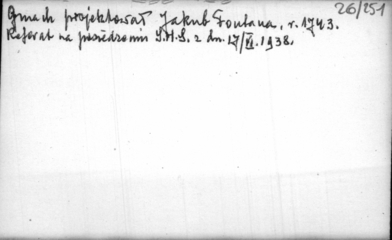 26/251
Gmach projektował Jakub Fontana, r. 1743.
Referat na posiedzeniu S.H.S. z dn. 17/VI.1938.